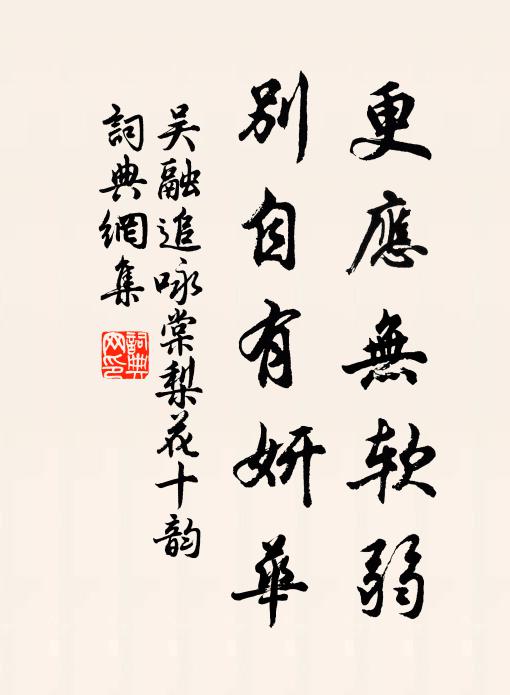 更應無軟弱
別自有妍華
吳融追咏棠梨花十韵
詞典網集
詞典網印